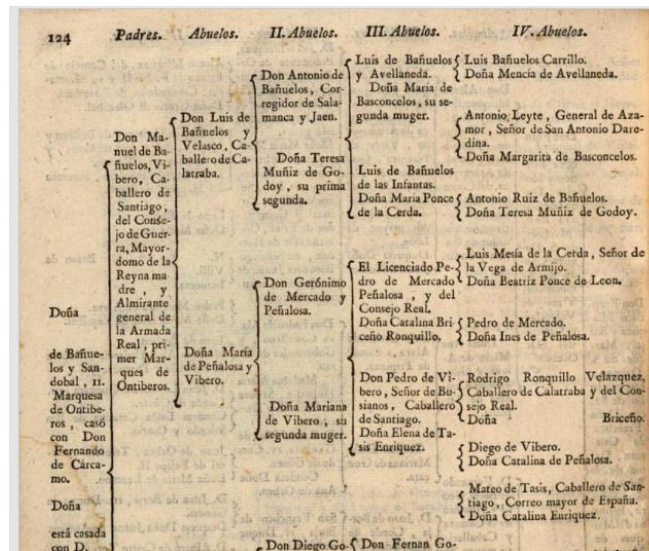 124 Padres. Abuelos. II. Abuelos. III. Abuelos. IV. Abuelos.
Doña
de Bañue-
los y San-
dobal, II.
Marquesa
de Ontibe-
ros, casó
con Don
Fernando
de Cárca-
mo.
Doña
está casada
con D.
Don Ma-
nuel de Ba-
ñuelos, Vi-
bero, Ca-
ballero de
Santiago,
del Conse-
jo de Guer-
ra, Mayor-
domo de la
Reyna ma-
dre, y
Almirante
general de
la Armada
Real, pri-
mer Mar-
ques de
Ontiberos.
Don Luis de
Bañuelos y
Velasco, Ca-
ballero de Ca-
latraba.
Doña María
de Peñalosa y
Vibero.
Don Antonio de
Bañuelos, Cor-
regidor de Sala-
manca y Jaen.
Doña Teresa
Muñiz de Go-
doy, su prima
segunda.
Don Gerónimo
de Mercado y
Peñalosa.
Doña Mariana
de Vibero, su
segunda muger.
Don Diego Go-
Luis de Bañuelos
y Avellaneda.
Doña Maria de
Basconcelos, su se-
gunda muger.
Luis de Bañuelos
de las Infantas.
Doña Maria Ponce
de la Cerda.
El Licenciado Pe-
dro de Mercado
Peñalosa, y del
Consejo Real.
Doña Catalina Bri-
ceño Ronquillo.
Don Pedro de Vi-
bero, Señor de Bu-
sianos, Caballero
de Santiago.
Doña Elena de Ta-
sis Enriquez.
Don Fernan Go-
Luis Bañuelos Carrillo.
Doña Mencia de Avellaneda.
Antonio Leyte, General de Aza-
mor, Señor de San Antonio Dare-
dina.
Doña Margarita de Basconcelos.
Antonio Ruiz de Bañuelos.
Doña Teresa Muñiz de Godoy.
Luis Mesía de la Cerda, Señor de
la Vega de Armijo.
Doña Beatriz Ponce de Leon.
Pedro de Mercado.
Doña Ines de Peñalosa.
Rodrigo Ronquillo Velazquez,
Caballero de Calatraba y del Con-
sejo Real.
Doña Briceño.
Diego de Vibero.
Doña Catalina de Peñalosa.
Mateo de Tasis, Caballero de San-
tiago, Correo mayor de España.
Doña Catalina Enriquez.